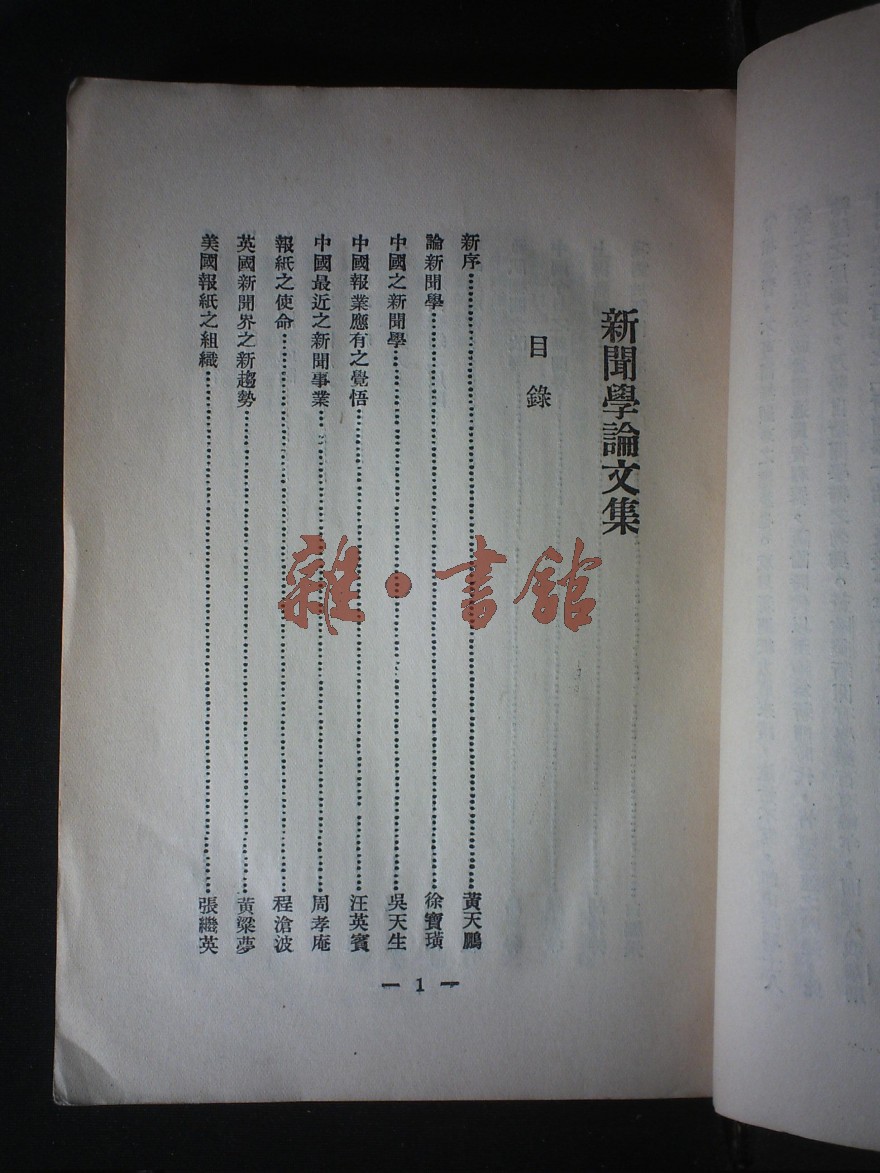 新聞學論文集
目錄
新序……黃天鵬
論新聞學……徐寶璜
中國之新聞學……吳天生
中國報業應有之覺悟……汪英賓
中國最近之新聞事業……周孝庵
報紙之使命……程滄波
英國新聞界之新趨勢……黃粱夢
美國報紙之組織……張繼英
— 1 —
雜·書館